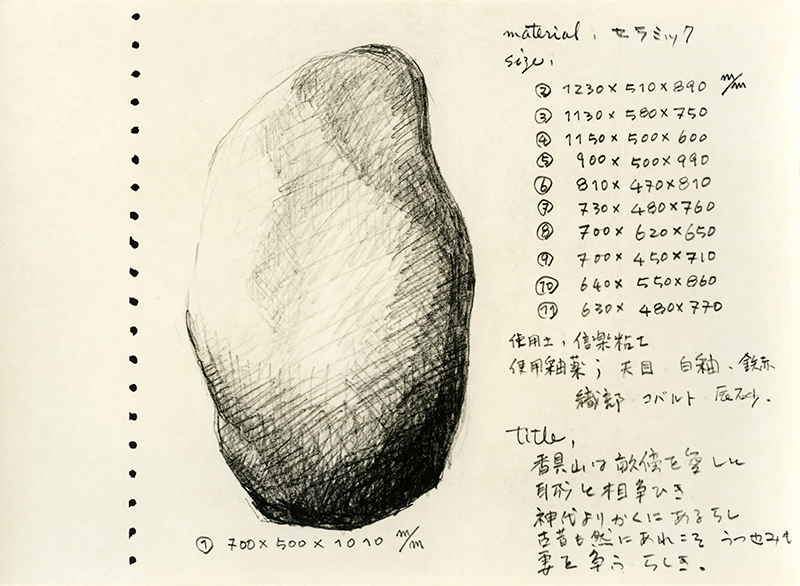 material; セラミック
size;
② 1230×510×890 m/m
③ 1130×580×750
④ 1150×500×600
⑤ 900×500×990
⑥ 810×470×810
⑦ 730×480×760
⑧ 700×620×650
⑨ 700×450×710
⑩ 640×550×860
⑪ 630×480×770
使用土; 信楽粘土
使用釉薬; 天目 白釉、鉄赤
織部 コバルト
title,
香具山は畝傍を愛しと
耳梨と相争ひき
神代よりかくにあるらし
古昔も然にあれこそ うつせみも
妻を争うらしき。
① 700×500×1010 m/m